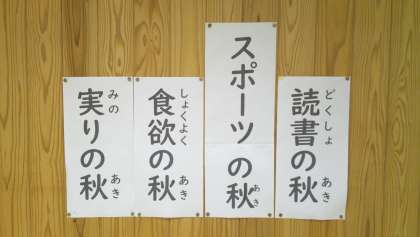 読書の秋
どくしょ あき
スポーツの秋
あき
食欲の秋
しょくよく あき
実りの秋
みの あき